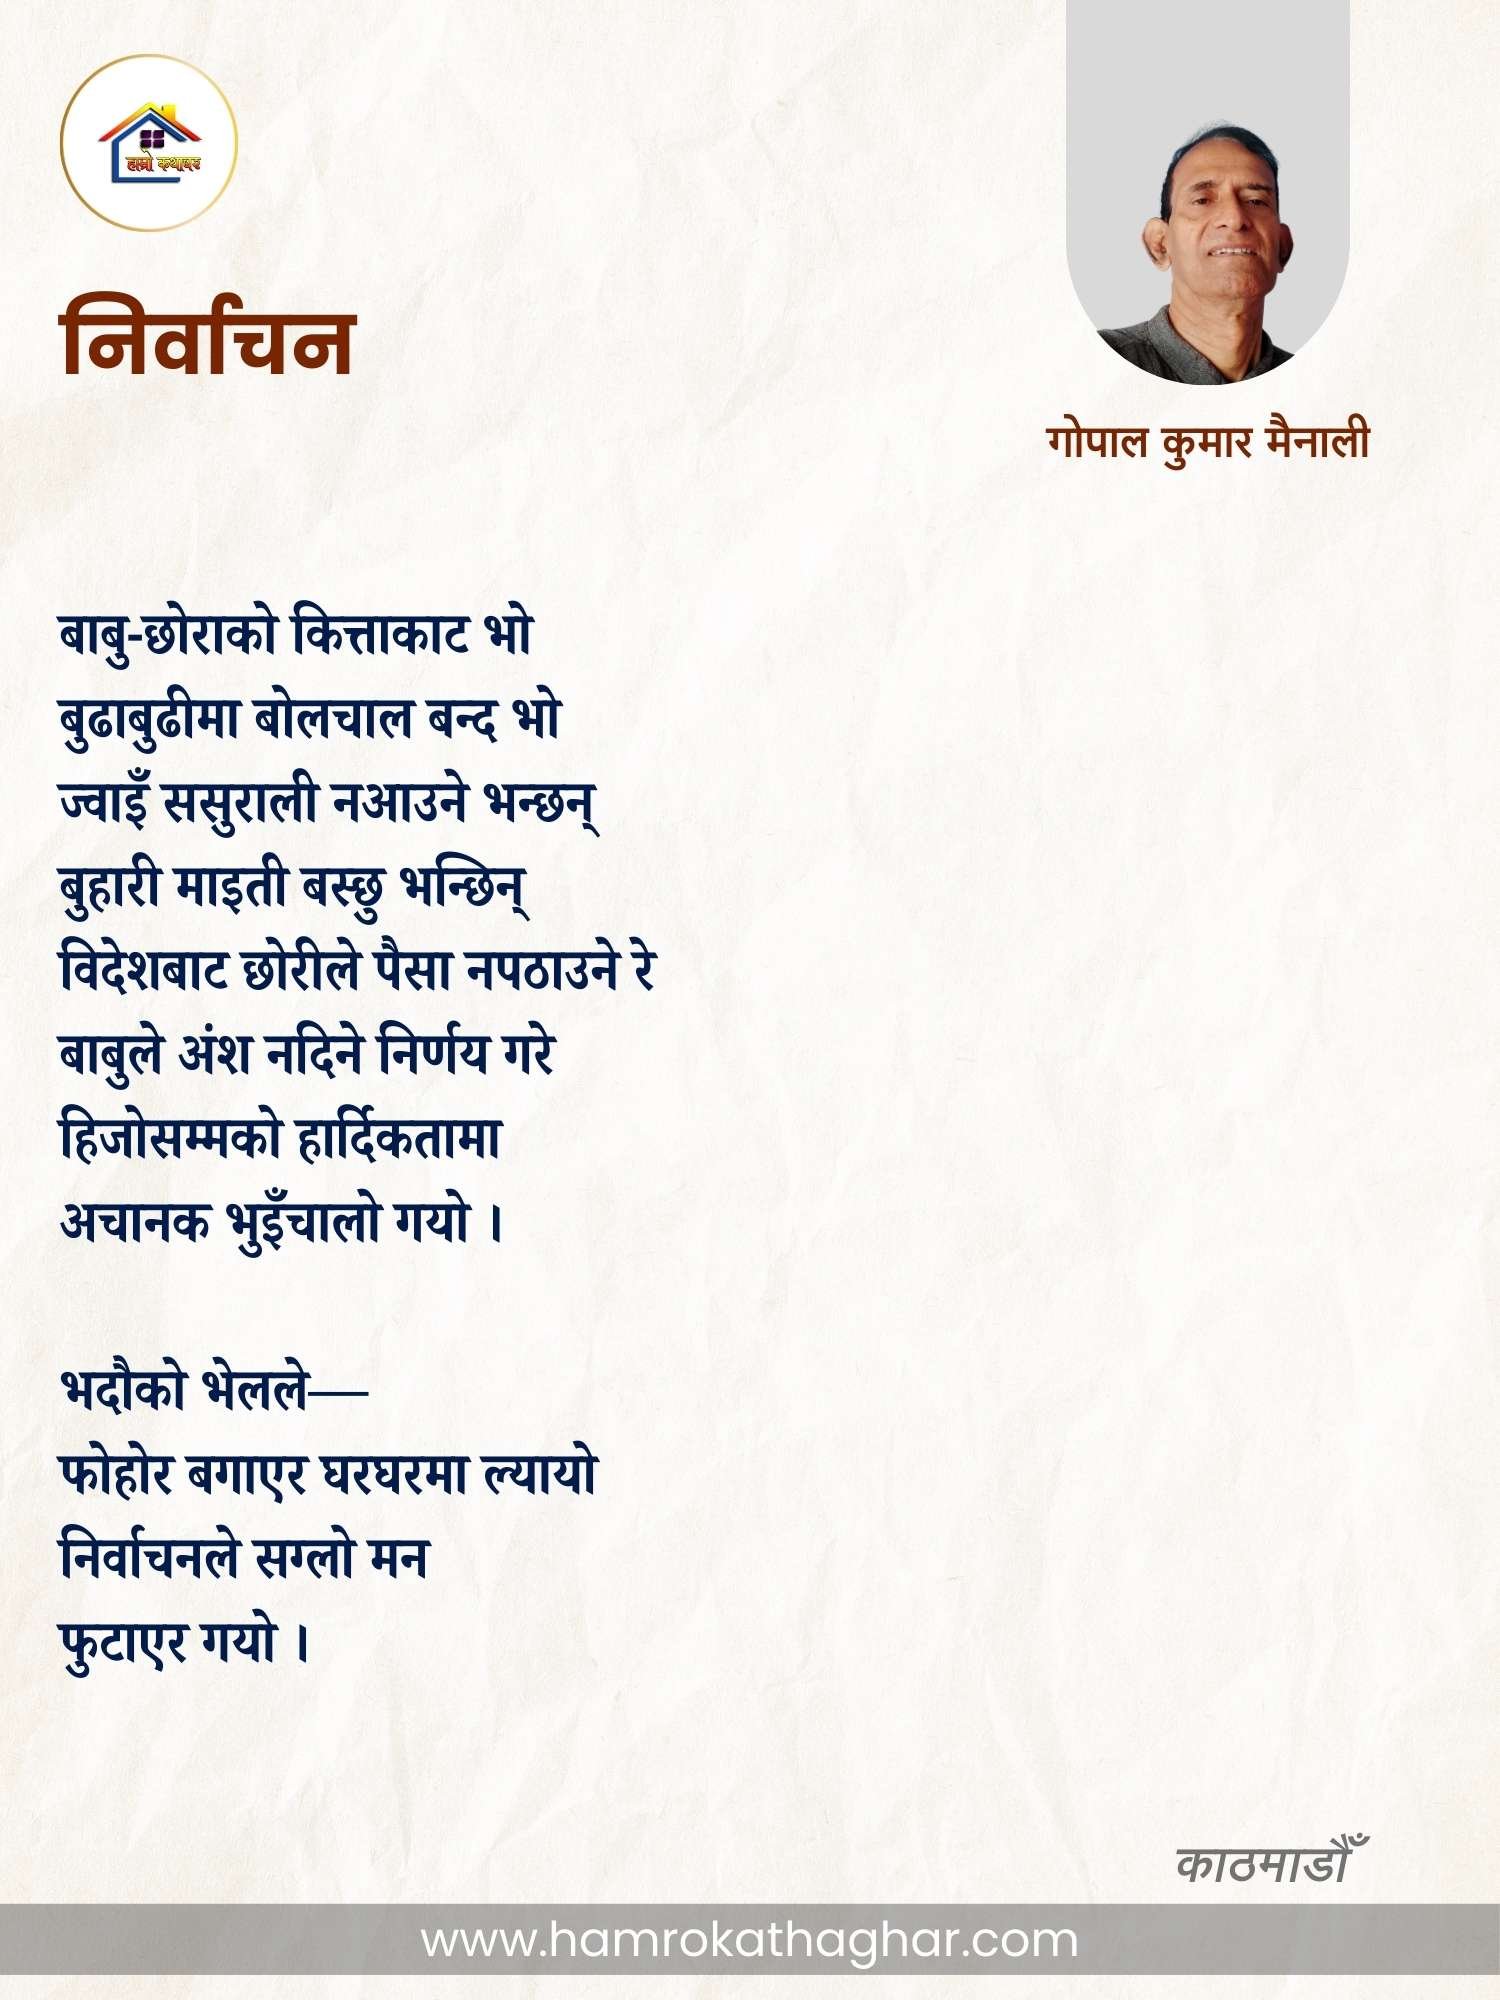 हाम्रो कथाघर
निर्वाचन
गोपाल कुमार मैनाली
बाबु-छोराको कित्ताकाट भो
बुढाबुढीमा बोलचाल बन्द भो
ज्वाइँ ससुराली नआउने भन्छन्
बुहारी माइती बस्छु भन्छिन्
विदेशबाट छोरीले पैसा नपठाउने रे
बाबुले अंश नदिने निर्णय गरे
हिजोसम्मको हार्दिकतामा
अचानक भुइँचालो गयो ।
भदौको भेलले—
फोहोर बगाएर घरघरमा ल्यायो
निर्वाचनले सग्लो मन
फुटाएर गयो ।
काठमाडौँ
www.hamrokathaghar.com